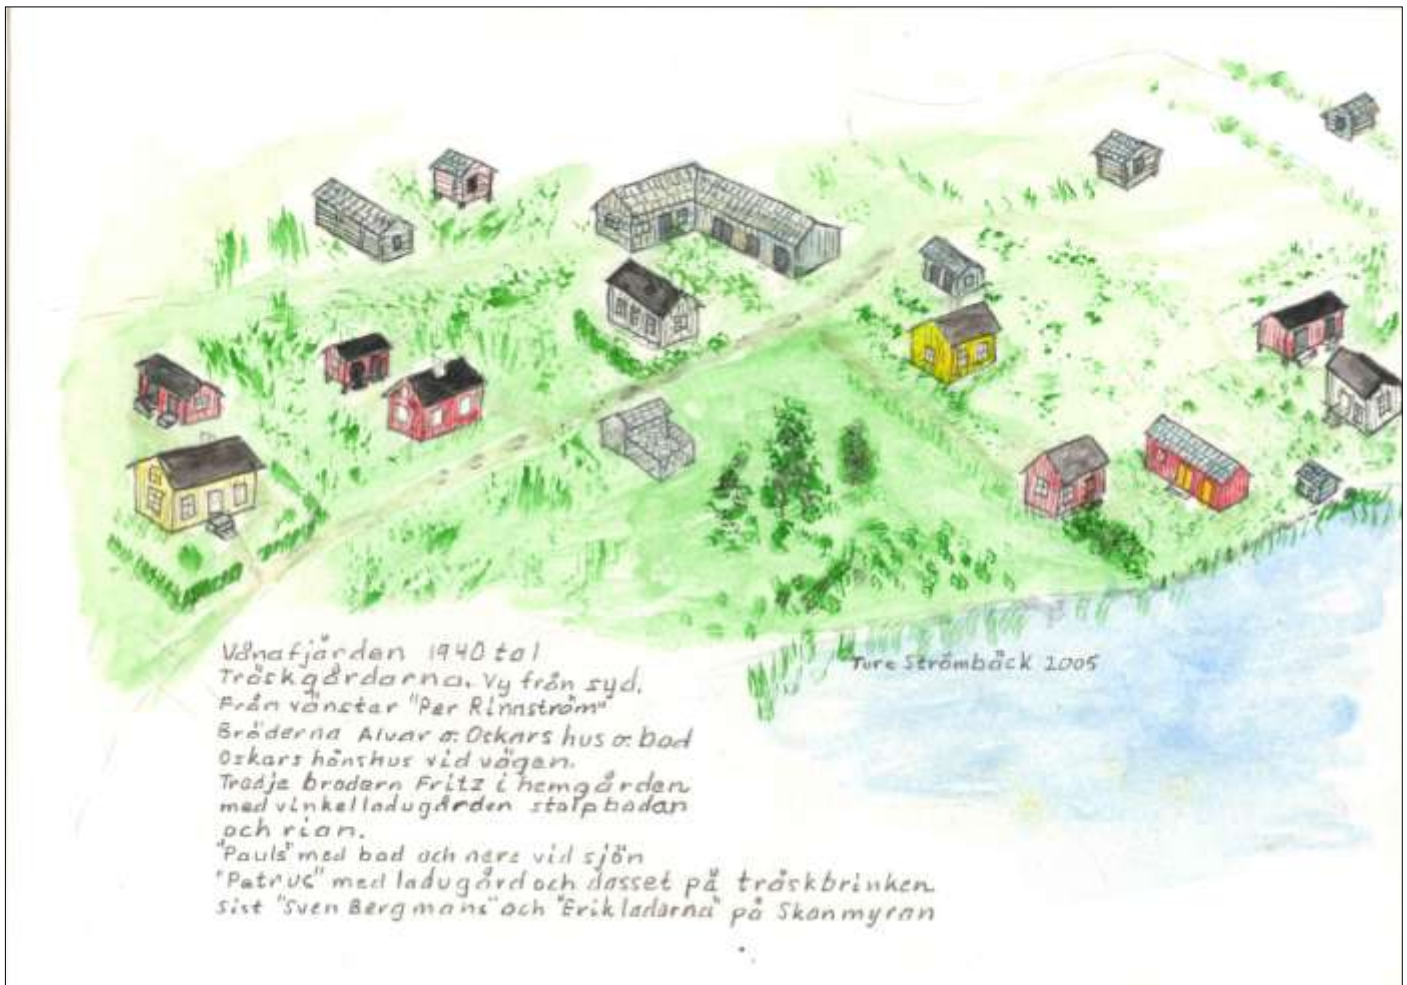 Vånafjärden 1940 tal
Träskgårdarna. Vy från syd.
Från vänster "Per Rinnström"
Bröderna Alvar o. Oskars hus o. bod
Oskars hönshus vid vägen.
Tredje brodern Fritz i hemgården
med vinkelladugården stolpbodan
och rian.
"Pauls" med bod och nere vid sjön
"Petrus" med ladugård och dasset på träskbrinken
sist "Sven Bergmans" och "Erikladorna" på Skanmyran
Ture Strömbäck 2005